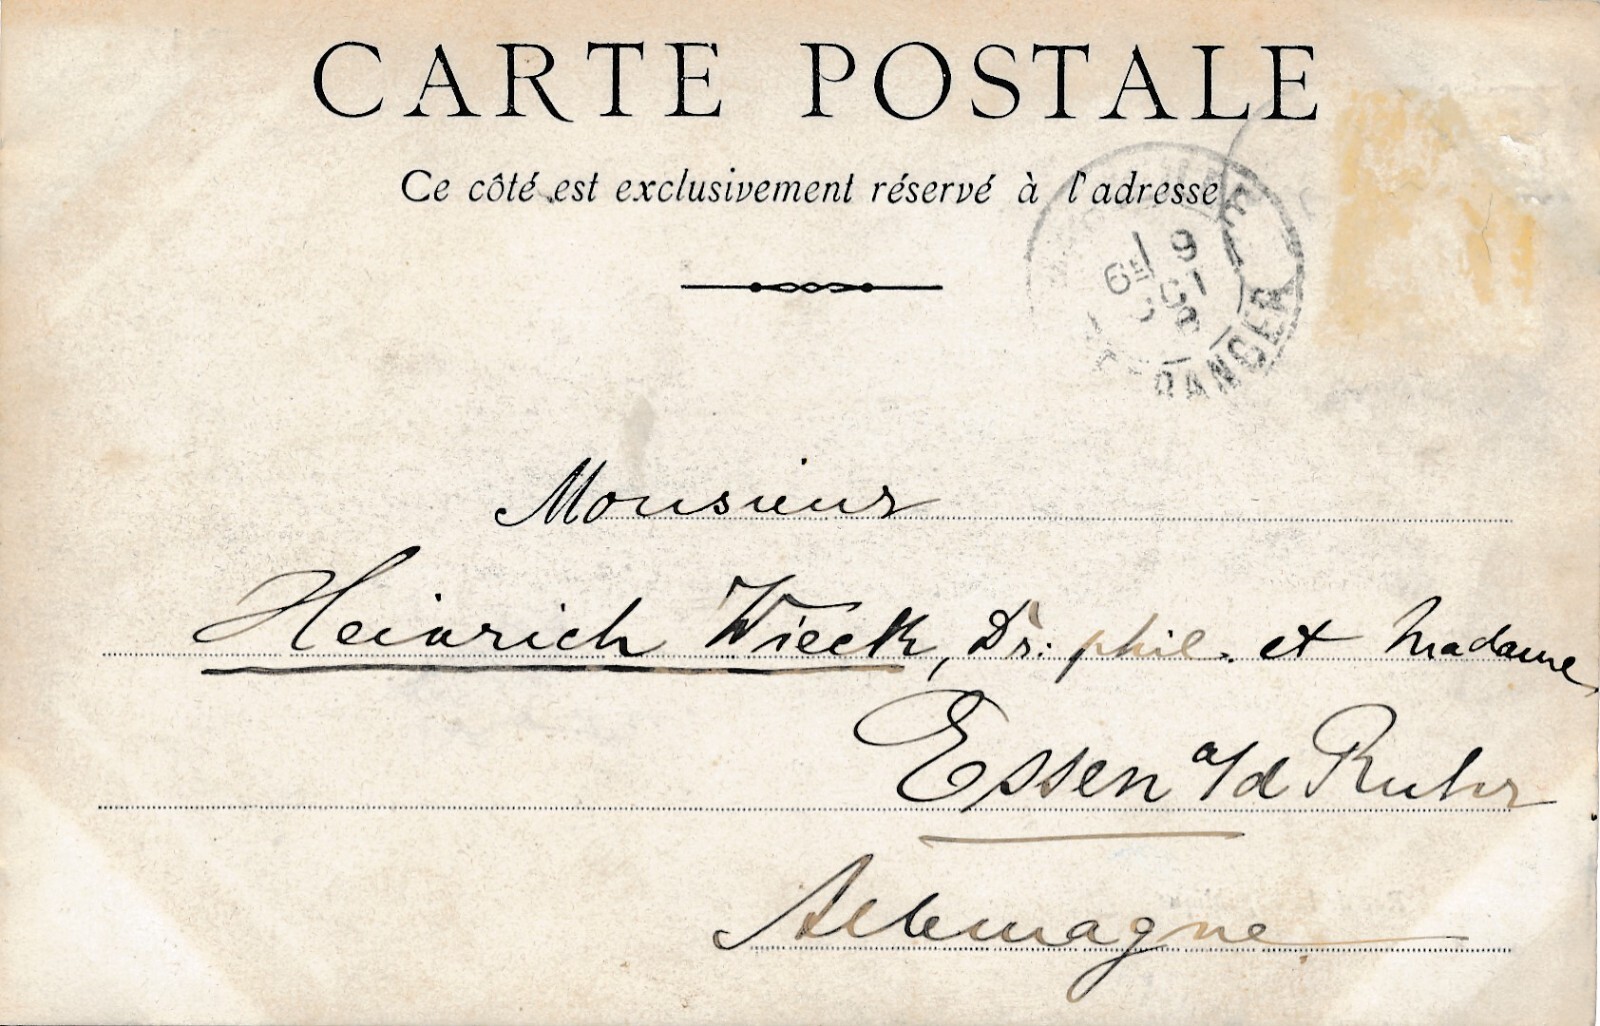 CARTE POSTALE
Ce côté est exclusivement réservé à l'adresse
6E 9
ETRANGER
Monsieur
Heinrich Wieck, Dr: phil. et Madame
Essen a/d Ruhr
Allemagne